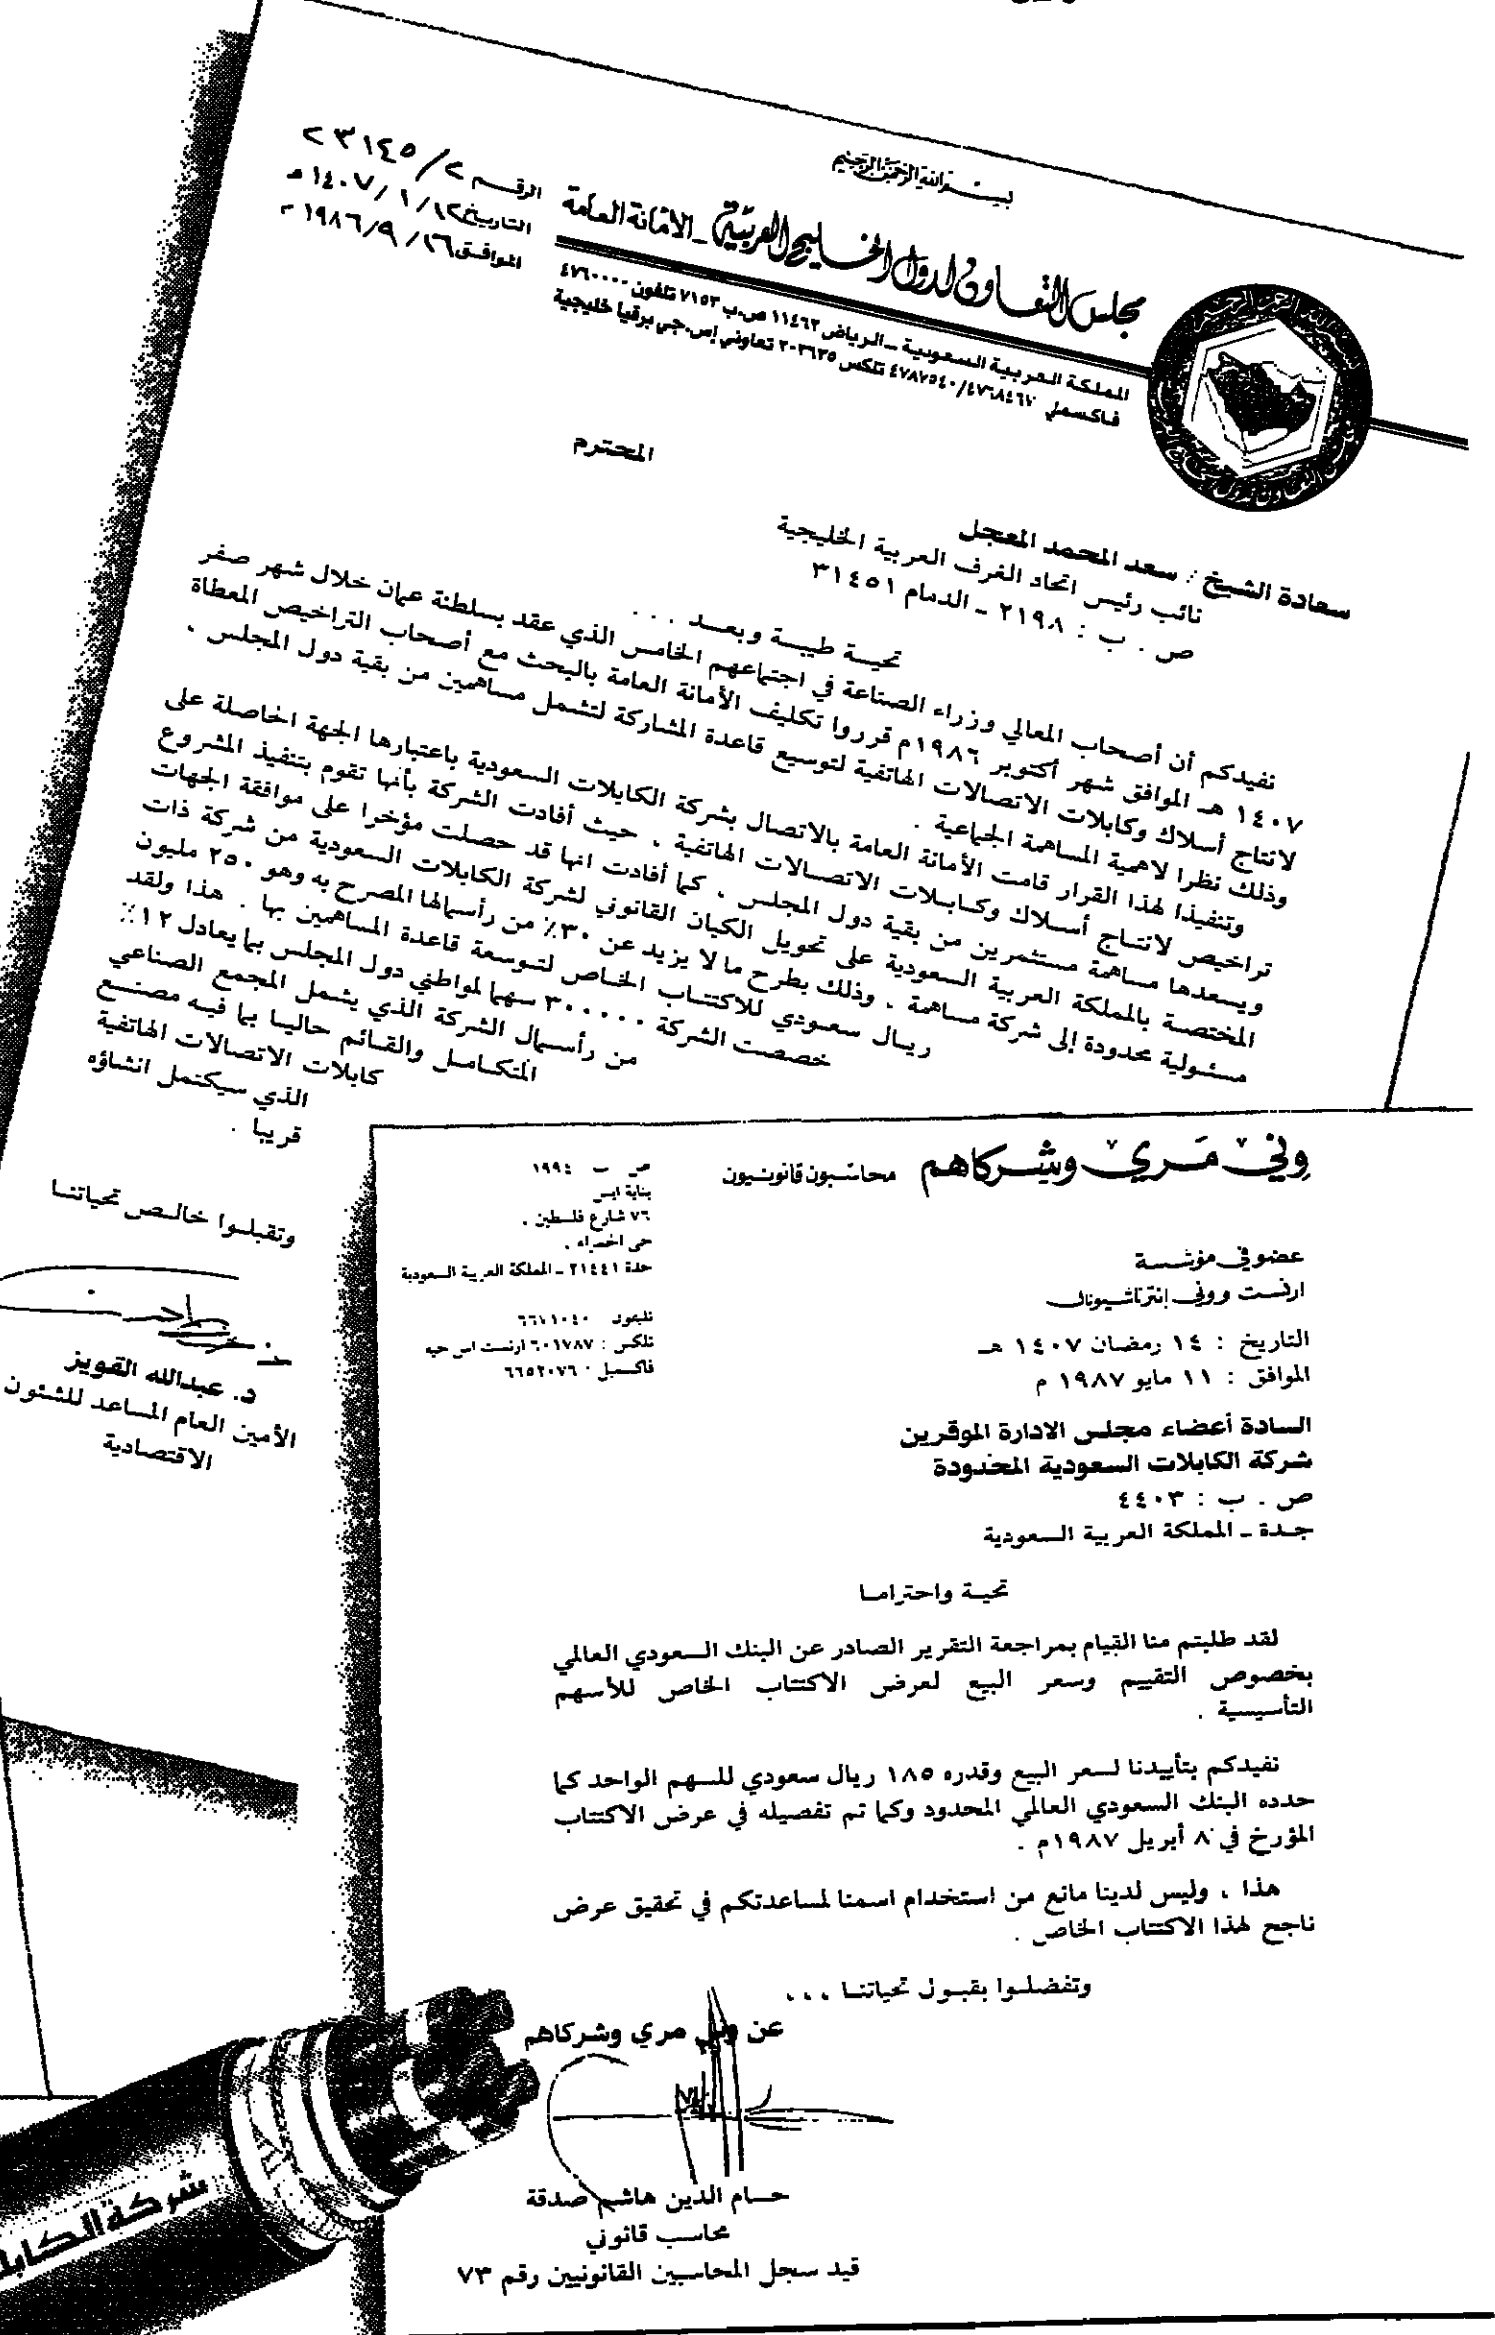 بسم الله الرحمن الرحيم
مجلس التعاون لدول الخليج العربية - الأمانة العامة
المملكة العربية السعودية - الرياض ١١٤٦٢ ص.ب ٧١٥٣ تلفون ٤٧٦٠٠٠٠
فاكسملي ٤٧٨٧٥٤٠/٤٧٦٨٤٦٧ تلكس ٢٠٣٦٣٥ تعاوني إس.جي برقيا خليجية
الرقم ٢٣١٤٥/٢
التاريخ ١٤٠٧/١/١٢ هـ
الموافق ١٩٨٦/٩/١٦ م
المحترم
سعادة الشيخ : سعد المحمد المعجل
نائب رئيس اتحاد الغرف العربية الخليجية
ص . ب : ٢١٩٨ - الدمام ٣١٤٥١
تحية طيبة وبعد . . .
نفيدكم أن أصحاب المعالي وزراء الصناعة في اجتماعهم الخامس الذي عقد بسلطنة عمان خلال شهر صفر
١٤٠٧ هـ الموافق شهر أكتوبر ١٩٨٦م قرروا تكليف الأمانة العامة بالبحث مع أصحاب التراخيص المعطاة
لانتاج أسلاك وكابلات الاتصالات الهاتفية لتوسيع قاعدة المشاركة لتشمل مساهمين من بقية دول المجلس ،
وذلك نظرا لاهمية المساهمة الجماعية .
وتنفيذا لهذا القرار قامت الأمانة العامة بالاتصال بشركة الكابلات السعودية باعتبارها الجهة الحاصلة على
تراخيص لانتاج أسلاك وكابلات الاتصالات الهاتفية . حيث أفادت الشركة بأنها تقوم بتنفيذ المشروع
ويسعدها مساهمة مستثمرين من بقية دول المجلس ، كما أفادت انها قد حصلت مؤخرا على موافقة الجهات
المختصة بالمملكة العربية السعودية على تحويل الكيان القانوني لشركة الكابلات السعودية من شركة ذات
مسئولية محدودة إلى شركة مساهمة ، وذلك بطرح ما لا يزيد عن ٣٠٪ من رأسمالها المصرح به وهو ٢٥٠ مليون
ريال سعودي للاكتتاب الخاص لتوسعة قاعدة المساهمين بها . هذا ولقد
خصصت الشركة ٣٠٠٠٠٠ سهما لمواطني دول المجلس بما يعادل ١٢٪
من رأسمال الشركة الذي يشمل المجمع الصناعي
المتكامل والقائم حاليا بما فيه مصنع
كابلات الاتصالات الهاتفية
الذي سيكتمل انشاؤه
قريبا .
وتقبلوا خالص تحياتنا
د. عبدالله القويز
الأمين العام المساعد للشئون
الاقتصادية
وني مري وشركاهم محاسبون قانونيون
عضو في مؤسسة
ارنست ووني إنترناشيونال
ص ب ١٩٩٤
بناية ابس
٧٦ شارع فلسطين .
حي الحمراء .
جدة ٢١٤٤١ - المملكة العربية السعودية
تليفون ٦٦٧١٠٤٠
تلكس : ٦٠١٧٨٧ ارنست اس جيه
فاكسميل : ٦٦٥٢٠٧٦
التاريخ : ١٤ رمضان ١٤٠٧ هـ
الموافق : ١١ مايو ١٩٨٧ م
السادة أعضاء مجلس الادارة الموقرين
شركة الكابلات السعودية المحدودة
ص . ب : ٤٤٠٣
جدة - المملكة العربية السعودية
تحية واحتراما
لقد طلبتم منا القيام بمراجعة التقرير الصادر عن البنك السعودي العالمي
بخصوص التقييم وسعر البيع لعرض الاكتتاب الخاص للأسهم
التأسيسية .
نفيدكم بتأييدنا لسعر البيع وقدره ١٨٥ ريال سعودي للسهم الواحد كما
حدده البنك السعودي العالمي المحدود وكما تم تفصيله في عرض الاكتتاب
المؤرخ في ٨ أبريل ١٩٨٧م .
هذا ، وليس لدينا مانع من استخدام اسمنا لمساعدتكم في تحقيق عرض
ناجح لهذا الاكتتاب الخاص .
وتفضلوا بقبول تحياتنا ، ، ،
عن وني مري وشركاهم
حسام الدين هاشم صدقة
محاسب قانوني
قيد سجل المحاسبين القانونيين رقم ٧٣
شركة الكابلا